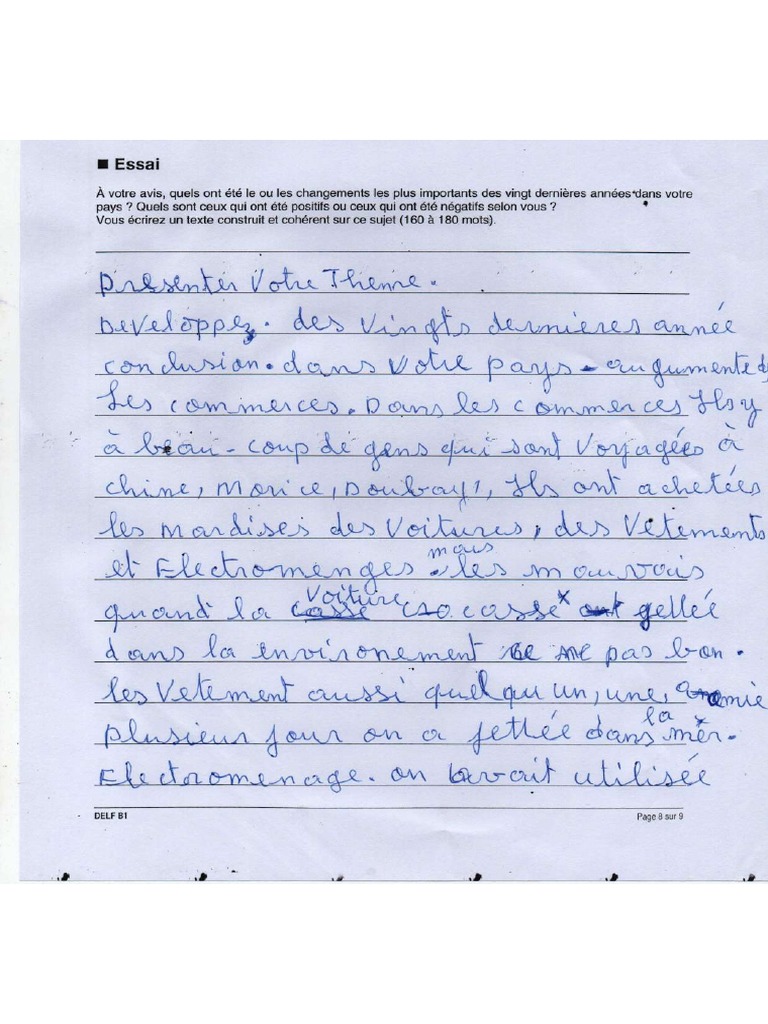 ■ Essai
À votre avis, quels ont été le ou les changements les plus importants des vingt dernières années dans votre
pays ? Quels sont ceux qui ont été positifs ou ceux qui ont été négatifs selon vous ?
Vous écrirez un texte construit et cohérent sur ce sujet (160 à 180 mots).
Presenter Votre Theme.
Developpez. des vingts dernières année
conclusion. dans votre pays - augumente
Les commerces. Dans les commerces Ils y
à beau-coup de gens qui sont voyagées à
chine, Morice, Doubay, Ils ont achetées
les mardises des voitures, des Vetements
et Electromenges mais les mauvais
quand la voiture casse gellée
dans la environement ne pas bon.
les Vetement aussi quelqu un, une,
plusieur jour on a jettée dans la mèr.
Electromenage. on avait utilisée
DELF B1
Page 8 sur 9